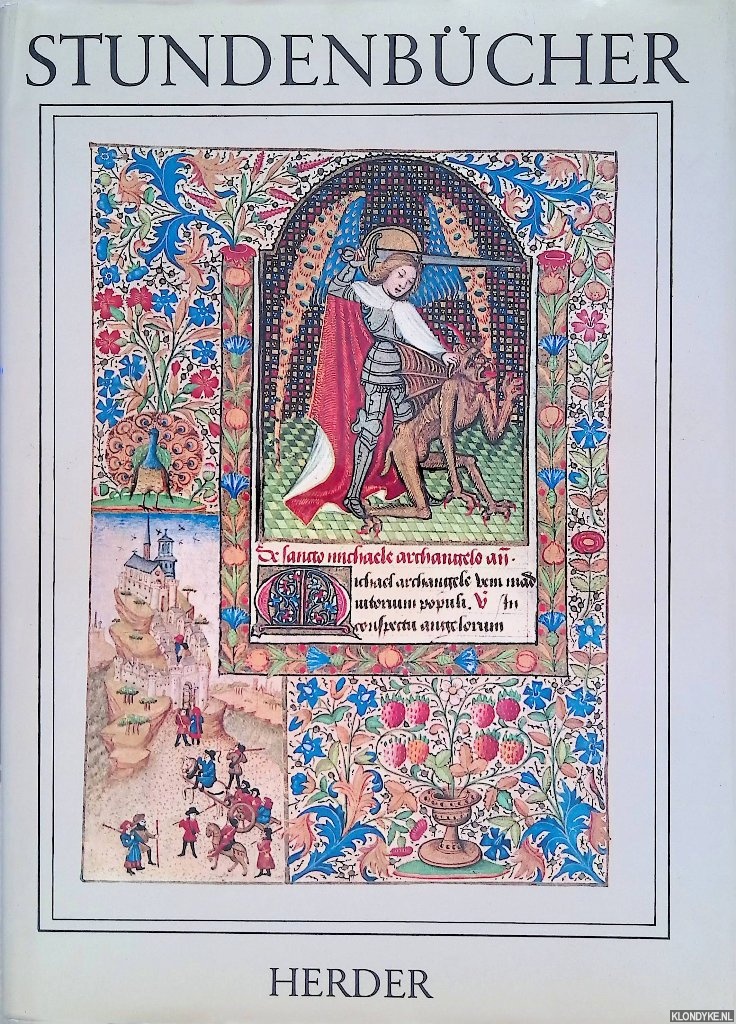 STUNDENBÜCHER
De sancto michaele archangelo añ.
Michael archangele veni in ad
iutorium populi. V In
conspectu angelorum
HERDER
KLONDYKE.NL